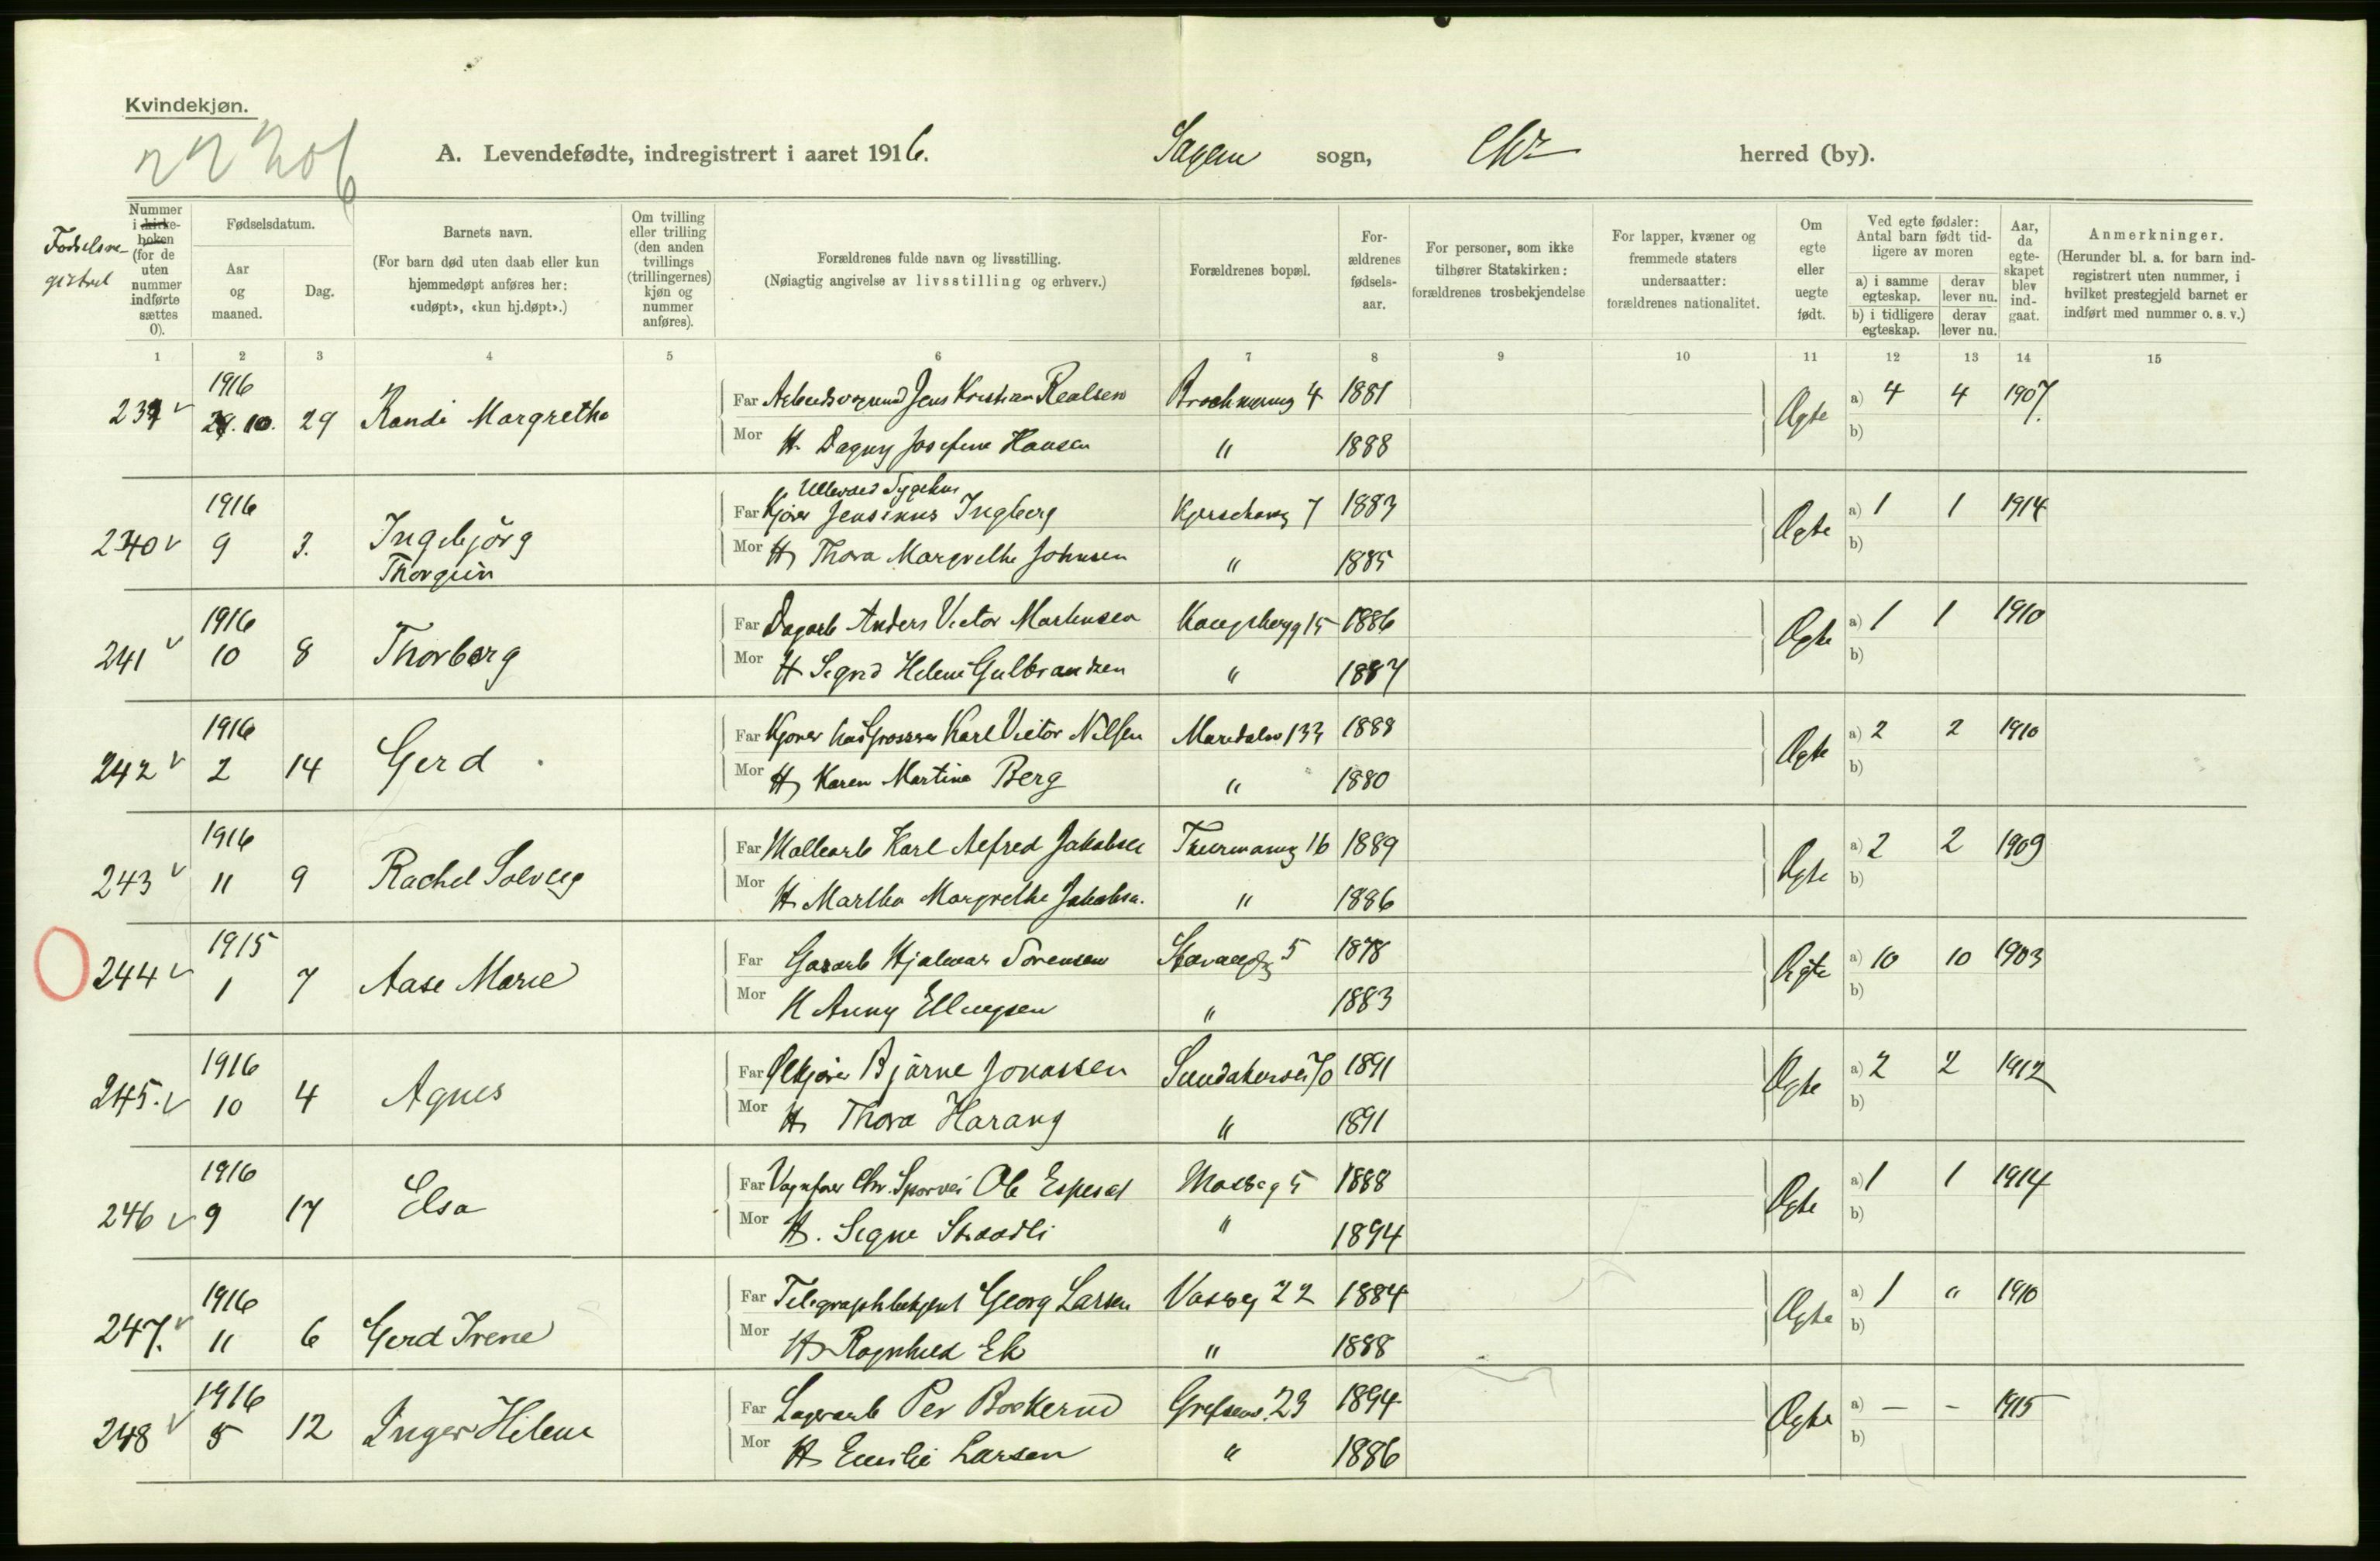 Kvindekjøn.
A. Levendefødte, indregistrert i aaret 1916. Sagene sogn, Chr herred (by).
Fødselsre-
gistret
Nummer i kirke-boken (for de uten nummer indførte sættes 0).
Fødselsdatum.
Aar og maaned.
Dag.
Barnets navn.
(For barn død uten daab eller kun hjemmedøpt anføres her: «udøpt», «kun hj.døpt».)
Om tvilling eller trilling (den anden tvillings (trillingernes) kjøn og nummer anføres).
Forældrenes fulde navn og livsstilling.
(Nøiagtig angivelse av livsstilling og erhverv.)
Forældrenes bopæl.
For-ældrenes fødsels-aar.
For personer, som ikke tilhører Statskirken: forældrenes trosbekjendelse
For lapper, kvæner og fremmede staters undersaatter: forældrenes nationalitet.
Om egte eller uegte født.
Ved egte fødsler: Antal barn født tid-ligere av moren
a) i samme egteskap.
derav lever nu.
b) i tidligere egteskap.
derav lever nu.
Aar, da egte-skapet blev ind-gaat.
Anmerkninger.
(Herunder bl. a. for barn ind-registrert uten nummer, i hvilket prestegjeld barnet er indført med nummer o. s. v.)
1 2 3 4 5 6 7 8 9 10 11 12 13 14 15
1916
10. 29 Randi Margrethe Far Jens Kristian Realsen 4 1881 Ægte a) 4 4 1907.
Mor H. Dagny Josefine Hansen " 1888 b)
Ullevaal Sygehus
1916
240 v 9 3. Ingebjörg Far Kjører Jensinus Ingberg 7 1883 Ægte a) 1 1 1914
Thorgun Mor H Thora Margrethe Johnsen " 1885 b)
1916
241 v 10 8 Thorborg Far Dagarb Anders Victor Martinsen 15 1886 Ægte a) 1 1 1910
Mor H Sigrid Helene Gulbrandsen " 1887 b)
1916
242 v 2 14 Gerd Far Kjører hos Grosserer Karl Victor Nilsen Maridalsv 133 1888 Ægte a) 2 2 1910
Mor H Karen Martine Berg " 1880 b)
1916
243 v 11 9 Rachel Solveig Far Møllearb Karl Alfred Jakobsen Thurmannsg 16 1889 Ægte a) 2 2 1909
Mor H. Martha Margrethe Jakobsen. " 1886 b)
1915
244 v 1 7 Aase Marie Far Gasarb Hjalmar Sørensen Stavangerg 5 1878 Ægte a) 10 10 1903
Mor H Anny Ellingsen " 1883 b)
1916
245. v 10 4 Agnes Far Ølkjører Bjarne Jonassen Sandakerveien 70 1891 Ægte a) 2 2 1912
Mor H Thora Harang " 1891 b)
1916
246 v 9 17 Elsa Far Vognfører Chr. Sporvei Ole Espeset Mosseg 5 1888 Ægte a) 1 1 1914
Mor H. Signe " 1894 b)
1916
247. v 11 6 Gerd Irene Far Telegraphbetjent Georg Larsen 22 1884 Ægte a) 1 " 1910
Mor H Ragnhild Ek " 1888 b)
1916
248 v 5 12 Inger Helene Far Lagerarb Per Grefsenv. 23 1894 Ægte a) — - 1915
Mor H Emilie Larsen " 1886 b)